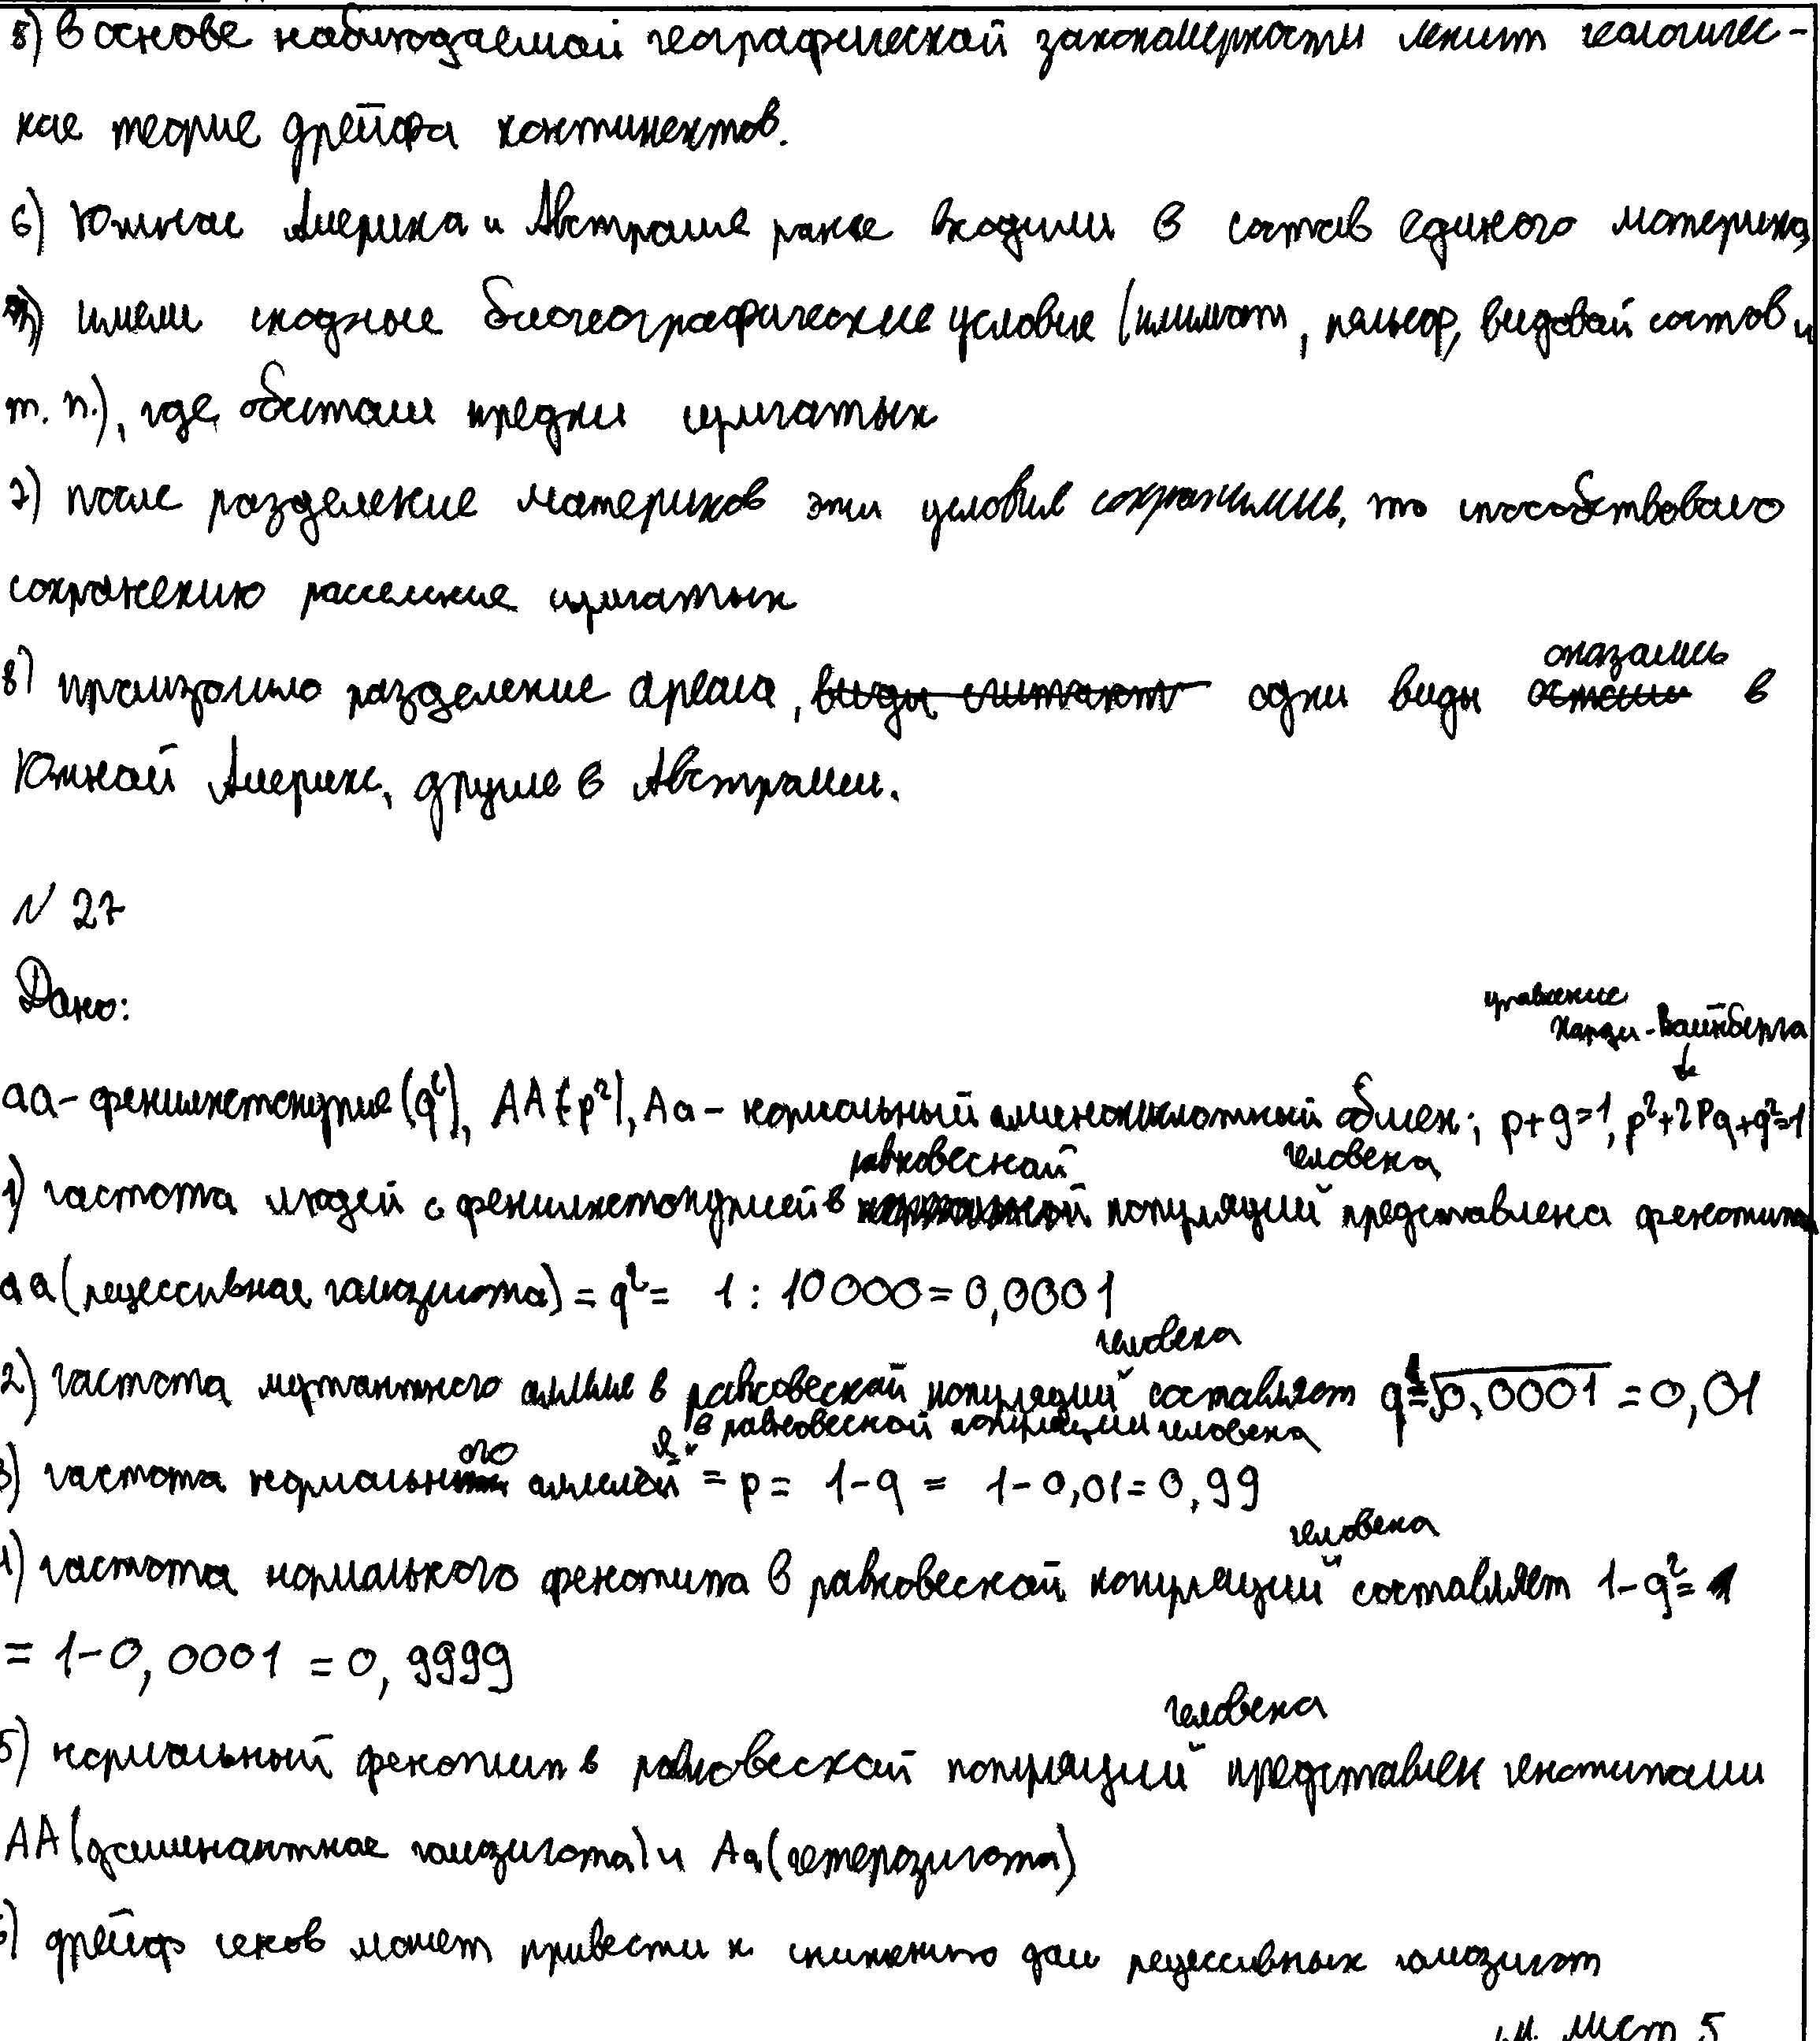 5) в основе наблюдаемой географической закономерности лежит геологичес-
кая теория дрейфа континентов.
6) Южная Америка и Австралия ранее входили в состав единого материка,
имели сходные биогеографические условия (климат, рельеф, видовой состав и
т. п.), где обитали предки
7) после разделения материков эти условия сохранились, то способствовало
сохранению расселения
8) произошло разделение ареала, виды считают одни виды оказались в
Южной Америке, другие в Австралии.
N 27
Дано:
уравнение
Харди-Вайнберга
↓
aa - фенилкетонурия (q²), AA (p²), Aa - нормальный аминокислотный обмен; p+q=1, p²+2pq+q²=1
1) частота людей с фенилкетонурией в равновесной популяции человека представлена фенотипом
aa (рецессивная гомозигота) = q² = 1 : 10000 = 0,0001
2) частота мутантного аллеля в равновесной популяции человека составляет q = √0,0001 = 0,01
3) частота нормального аллеля в равновесной популяции человека = p = 1-q = 1-0,01=0,99
4) частота нормального фенотипа в равновесной популяции человека составляет 1-q² =
= 1-0,0001 = 0,9999
5) нормальный фенотип в равновесной популяции человека представлен генотипами
AA (доминантная гомозигота) и Aa (гетерозигота)
6) дрейф генов может привести к снижению доли рецессивных гомозигот
см. лист 5